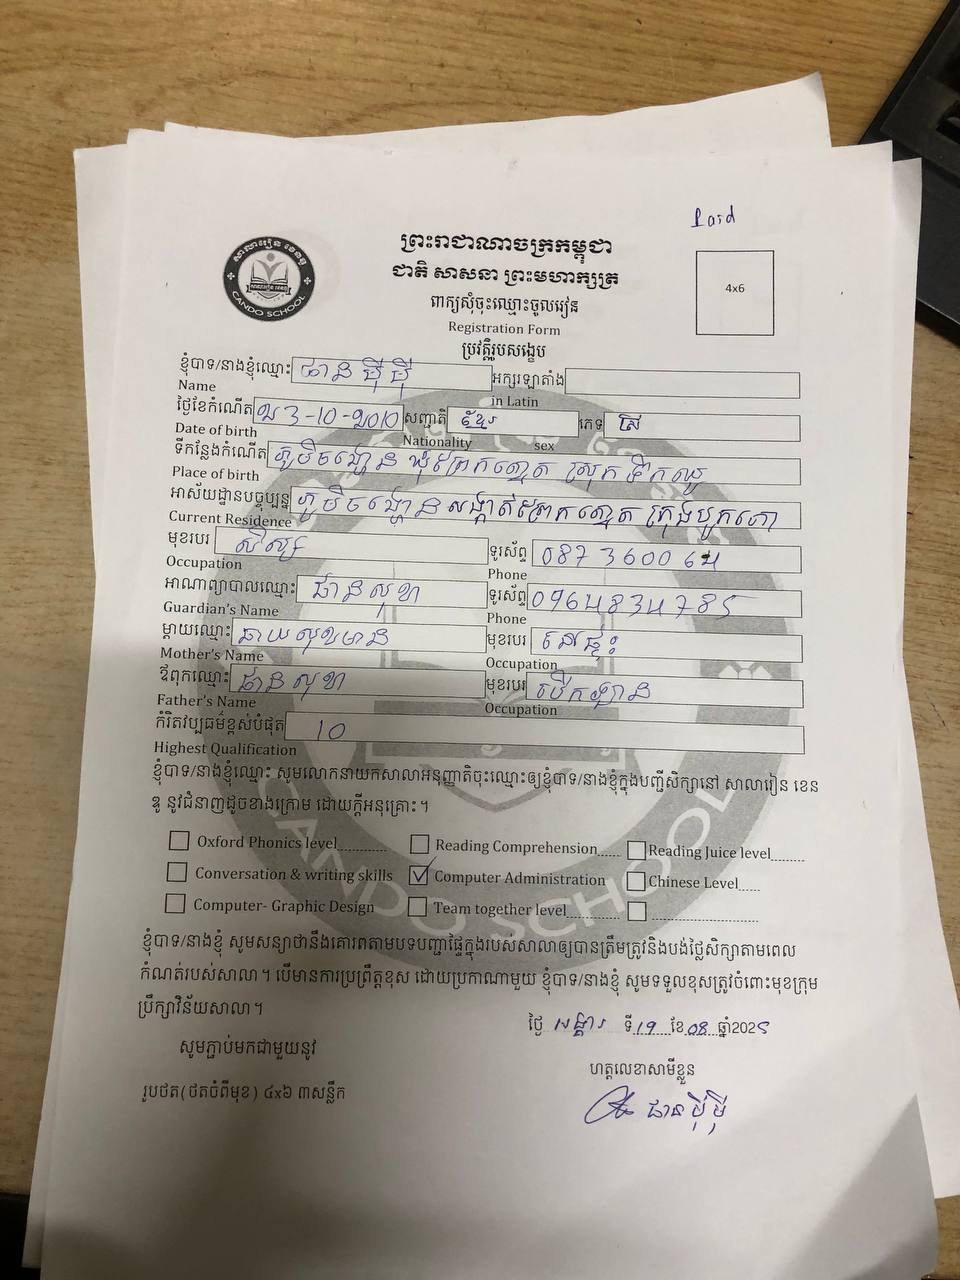 Pard
ព្រះរាជាណាចក្រកម្ពុជា
ជាតិ សាសនា ព្រះមហាក្សត្រ
ពាក្យសុំចុះឈ្មោះចូលរៀន
Registration Form
ប្រវត្តិរូបសង្ខេប
4x6
សាលារៀន ខេនឌូ
CANDO SCHOOL
ខ្ញុំបាទ/នាងខ្ញុំឈ្មោះ ផាន ម៉ីម៉ី អក្សរឡាតាំង
Name in Latin
ថ្ងៃខែកំណើត ២3-10-២០10 សញ្ជាតិ ខ្មែរ ភេទ ស្រី
Date of birth Nationality sex
ទីកន្លែងកំណើត ភូមិ ឃុំព្រែកត្នោត ស្រុកទឹកឈូ
Place of birth
អាស័យដ្ឋានបច្ចុប្បន្ន ភូមិ សង្កាត់ព្រែកត្នោត ក្រុងបូកគោ
Current Residence
មុខរបរ សិស្ស ទូរស័ព្ទ 087 3600 64
Occupation Phone
អាណាព្យាបាលឈ្មោះ ផាន សុខា ទូរស័ព្ទ 0964834785
Guardian's Name Phone
ម្តាយឈ្មោះ ឆាយ សុខមាន មុខរបរ នៅផ្ទះ
Mother's Name Occupation
ឪពុកឈ្មោះ ផាន សុខា មុខរបរ បើកឡាន
Father's Name Occupation
កំរិតវប្បធម៌ខ្ពស់បំផុត 10
Highest Qualification
ខ្ញុំបាទ/នាងខ្ញុំឈ្មោះ សូមលោកនាយកសាលាអនុញ្ញាតិចុះឈ្មោះឲ្យខ្ញុំបាទ/នាងខ្ញុំក្នុងបញ្ជីសិក្សានៅ សាលារៀន ខេន
ឌូ នូវជំនាញដូចខាងក្រោម ដោយក្តីអនុគ្រោះ។
Oxford Phonics level Reading Comprehension Reading Juice level
Conversation & writing skills ✓ Computer Administration Chinese Level
Computer- Graphic Design Team together level
ខ្ញុំបាទ/នាងខ្ញុំ សូមសន្យាថានឹងគោរពតាមបទបញ្ជាផ្ទៃក្នុងរបស់សាលាឲ្យបានត្រឹមត្រូវនិងបង់ថ្លៃសិក្សាតាមពេល
កំណត់របស់សាលា។ បើមានការប្រព្រឹត្តខុស ដោយប្រកាណាមួយ ខ្ញុំបាទ/នាងខ្ញុំ សូមទទួលខុសត្រូវចំពោះមុខក្រុម
ប្រឹក្សាវិន័យសាលា។
ថ្ងៃ អង្គារ ទី19 ខែ08 ឆ្នាំ2025
សូមភ្ជាប់មកជាមួយនូវ
ហត្ថលេខាសាមីខ្លួន
រូបថត(ថតចំពីមុខ) ៤x៦ ៣សន្លឹក
ផាន ម៉ីម៉ី